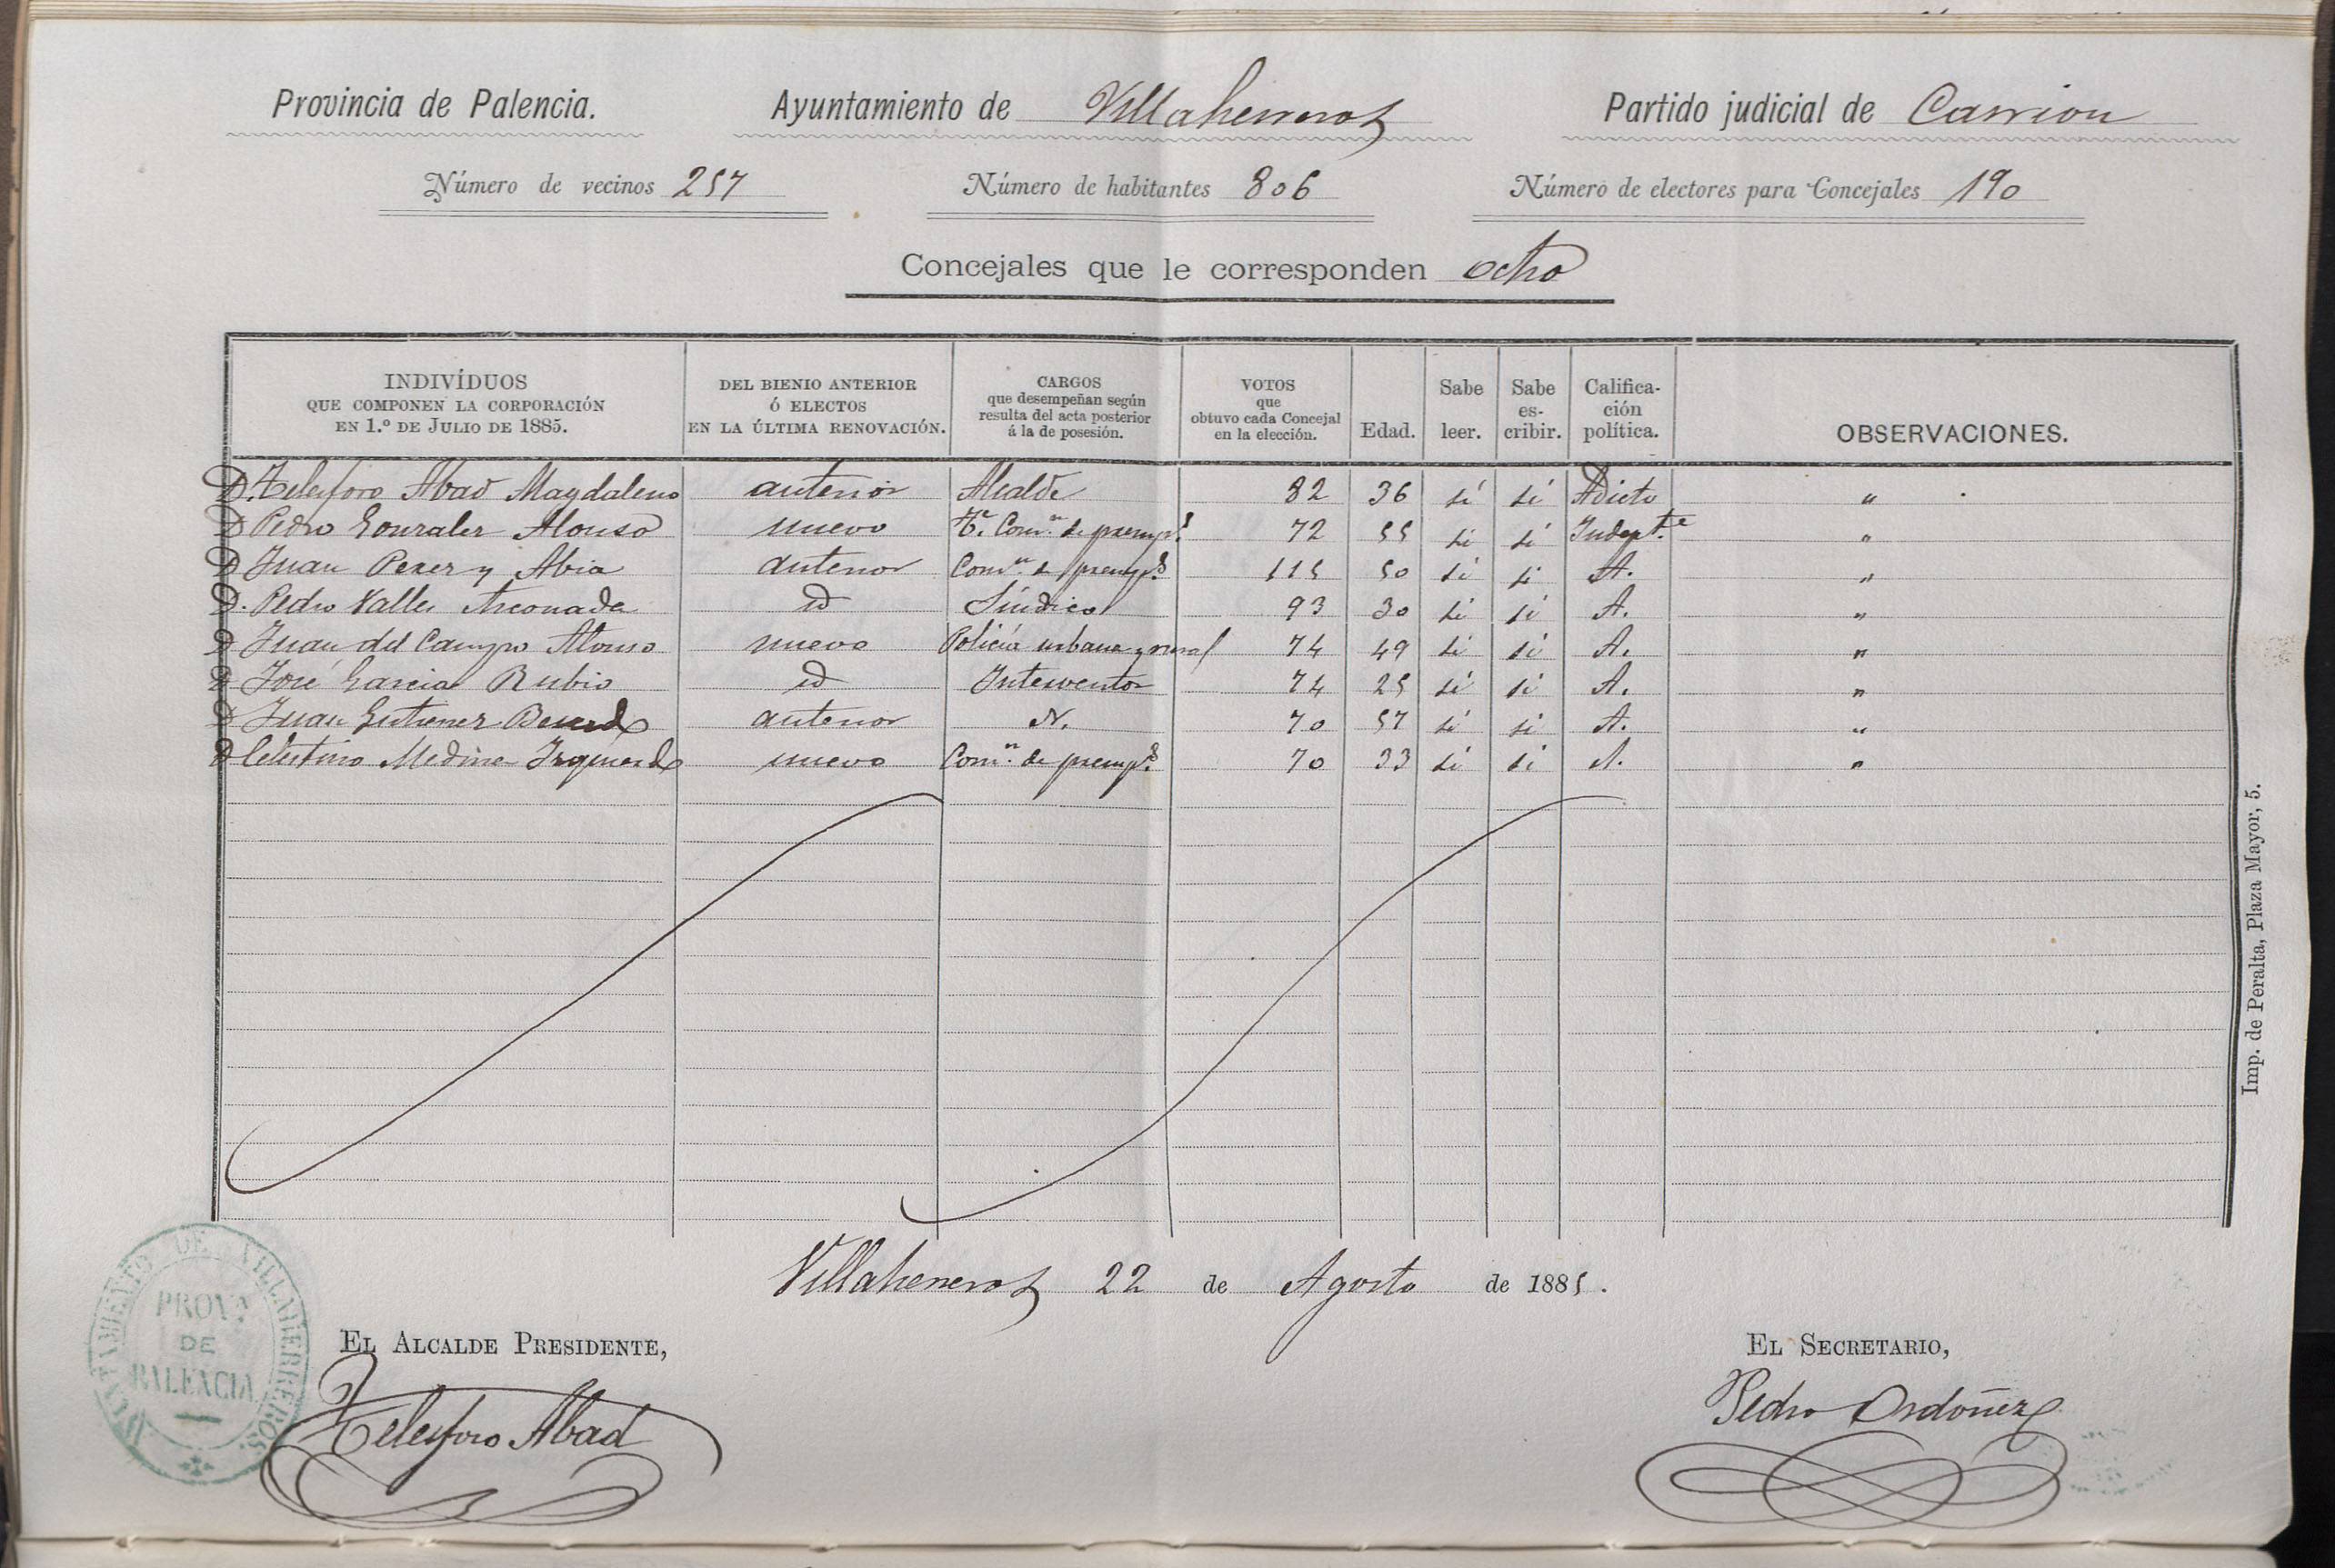 Provincia de Palencia. Ayuntamiento de Villaherreros Partido judicial de Carrion
Número de vecinos 257 Número de habitantes 806 Número de electores para Concejales 190
Concejales que le corresponden ocho
INDIVÍDUOS QUE COMPONEN LA CORPORACIÓN EN 1.º DE JULIO DE 1885. DEL BIENIO ANTERIOR Ó ELECTOS EN LA ÚLTIMA RENOVACIÓN. CARGOS que desempeñan según resulta del acta posterior á la de posesión. VOTOS que obtuvo cada Concejal en la elección. Edad. Sabe leer. Sabe es-cribir. Califica-ción política. OBSERVACIONES.
D. Telesforo Abad Magdaleno anterior Alcalde 82 36 sí sí Adicto "
D Pedro Gonzalez Alonso nuevo Te. Comn. de presupts 72 55 si sí Indepte. "
D Juan Perez y Abia anterior Comn. de presupts 115 50 si si A. "
D. Pedro Valles Arconada id Síndico 93 30 si si A. "
D Juan del Campo Alonso nuevo Policía urbana y rural 74 49 si si A. "
D José Garcia Rubio id Interventor 74 25 si si A. "
D Juan Gutierrez anterior N. 70 57 si si A. "
D Celestino Medina Izquierdo nuevo Comn. de presupts 70 33 si si A. "
Villaherreros 22 de Agosto de 1885.
EL ALCALDE PRESIDENTE, EL SECRETARIO,
Telesforo Abad Pedro Ordóñez
AYUNTAMIENTO DE VILLAHERREROS.
PROVA
DE
PALENCIA
Imp. de Peralta, Plaza Mayor, 5.